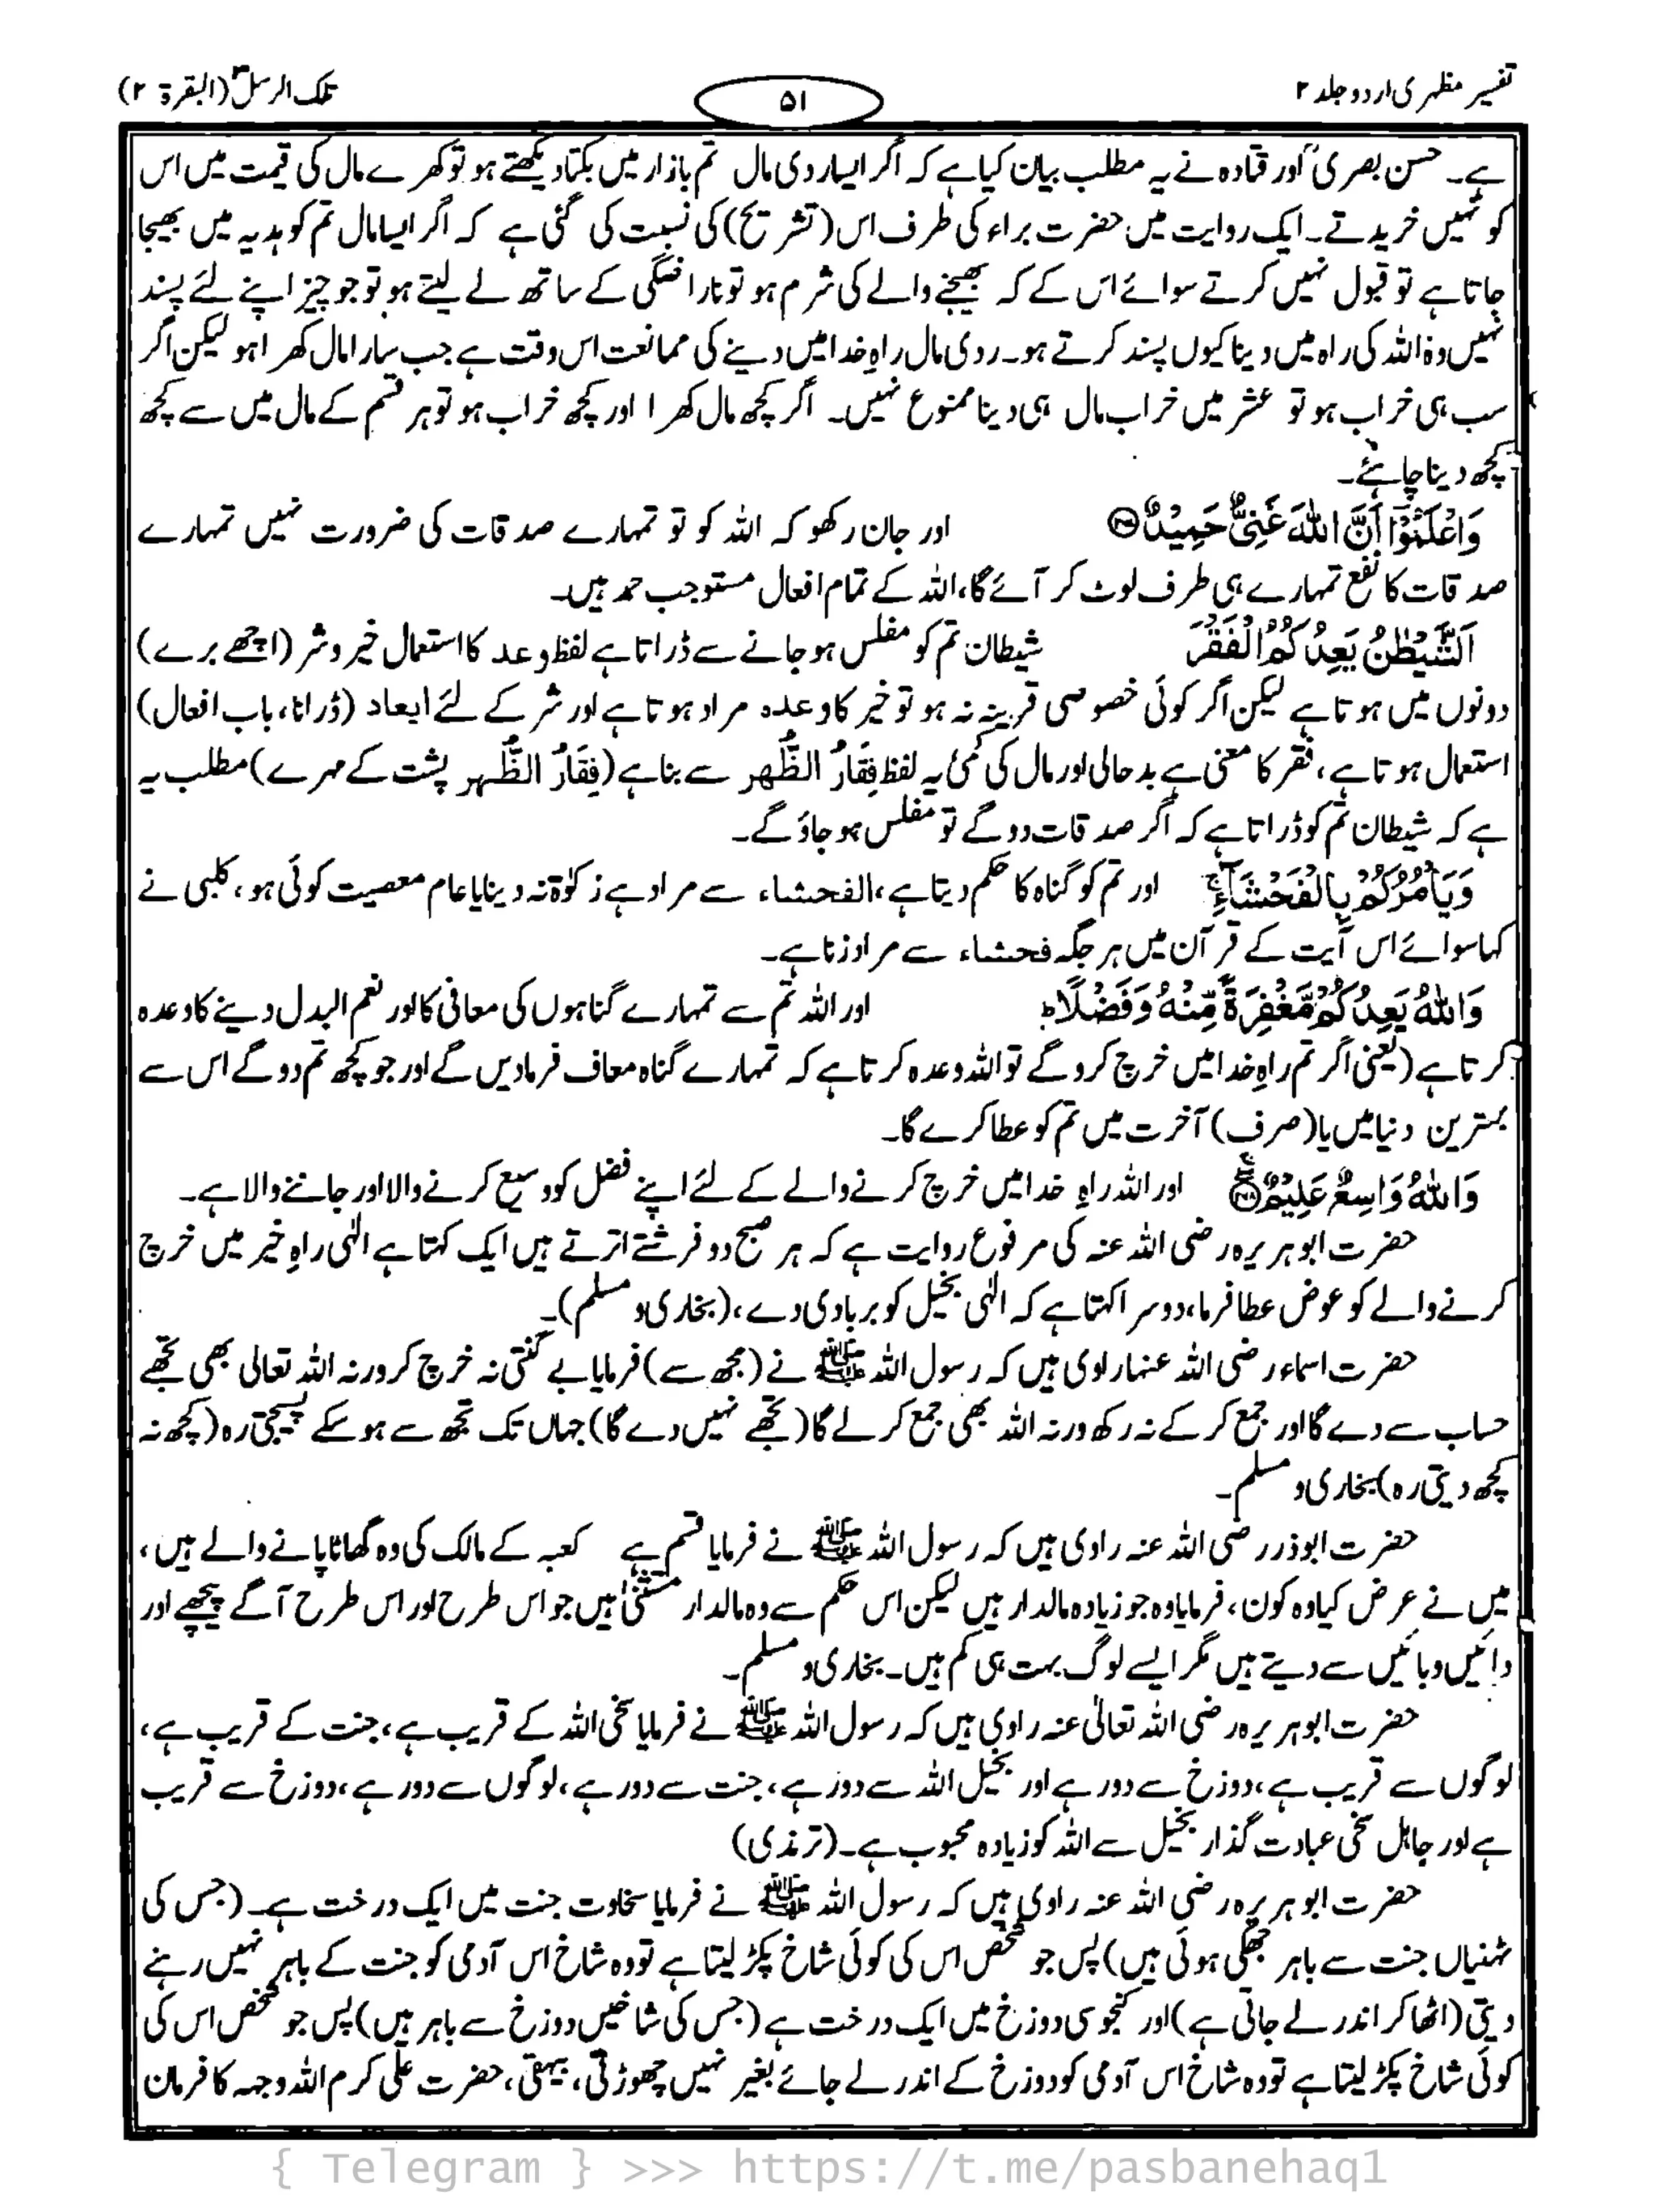 تفسیر مظہری اردو جلد ۲
۵۱
تلک الرسل ۳ (البقرۃ ۲)
ہے۔ حسن بصریؒ اور قتادہ نے یہ مطلب بیان کیا ہے کہ اگر ایسا ردی مال تم بازار میں بکتا دیکھتے ہو تو کھرے مال کی قیمت میں اس
کو نہیں خریدتے۔ ایک روایت میں حضرت براء کی طرف اس (تشریح) کی نسبت کی گئی ہے کہ اگر ایسا مال تم کو ہدیہ میں بھیجا
جاتا ہے تو قبول نہیں کرتے سوائے اس کے کہ بھیجنے والے کی شرم ہو تو ناراضگی کے ساتھ لے لیتے ہو تو جو چیز اپنے لئے پسند
نہیں وہ اللہ کی راہ میں دینا کیوں پسند کرتے ہو۔ ردی مال راہِ خدا میں دینے کی ممانعت اس وقت ہے جب سارا مال کھرا ہو لیکن اگر
سب ہی خراب ہو تو عشر میں خراب مال ہی دینا ممنوع نہیں۔ اگر کچھ مال کھرا اور کچھ خراب ہو تو ہر قسم کے مال میں سے کچھ
کچھ دینا چاہئے۔
وَاعْلَمُوْٓا اَنَّ اللّٰهَ غَنِیٌّ حَمِیْدٌ ﴿۲۶۷﴾ اور جان رکھو کہ اللہ کو تو تمہارے صدقات کی ضرورت نہیں تمہارے
صدقات کا نفع تمہارے ہی طرف لوٹ کر آئے گا، اللہ کے تمام افعال مستوجب حمد ہیں۔
اَلشَّیْطٰنُ یَعِدُكُمُ الْفَقْرَ شیطان تم کو مفلس ہو جانے سے ڈراتا ہے لفظ وعد کا استعمال خیر و شر (اچھے برے)
دونوں میں ہوتا ہے لیکن اگر کوئی خصوصی قرینہ نہ ہو تو خیر کا وعدہ مراد ہوتا ہے اور شر کے لئے ایعاد (ڈرانا، باب افعال)
استعمال ہوتا ہے، فقر کا معنی ہے بد حالی اور مال کی کمی یہ لفظ فِقَارُ الظَّهر سے بنا ہے (فِقَارُ الظَّہر پشت کے مہرے) مطلب یہ
ہے کہ شیطان تم کو ڈراتا ہے کہ اگر صدقات دو گے تو مفلس ہو جاؤ گے۔
وَیَاْمُرُكُمْ بِالْفَحْشَآءِ ۚ اور تم کو گناہ کا حکم دیتا ہے، الفحشاء سے مراد ہے زکوٰۃ نہ دینا یا عام معصیت کوئی ہو، کلبی نے
کہا سوائے اس آیت کے قرآن میں ہر جگہ فحشاء سے مراد زنا ہے۔
وَاللّٰهُ یَعِدُكُمْ مَّغْفِرَةً مِّنْهُ وَفَضْلًا ؕ اور اللہ تم سے تمہارے گناہوں کی معافی کا اور نعم البدل دینے کا وعدہ
کرتا ہے (یعنی اگر تم راہِ خدا میں خرچ کرو گے تو اللہ وعدہ کرتا ہے کہ تمہارے گناہ معاف فرما دیں گے اور جو کچھ تم دو گے اس سے
بہترین دنیا میں یا (صرف) آخرت میں تم کو عطا کرے گا۔
وَاللّٰهُ وَاسِعٌ عَلِیْمٌ ﴿۲۶۸﴾ اور اللہ راہِ خدا میں خرچ کرنے والے کے لئے اپنے فضل کو وسیع کرنے والا اور جاننے والا ہے۔
حضرت ابوہریرہ رضی اللہ عنہ کی مرفوع روایت ہے کہ ہر صبح دو فرشتے اترتے ہیں ایک کہتا ہے الٰہی راہِ خیر میں خرچ
کرنے والے کو عوض عطا فرما، دوسرا کہتا ہے کہ الٰہی بخیل کو بربادی دے، (بخاری و مسلم)۔
حضرت اسماء رضی اللہ عنہا راوی ہیں کہ رسول اللہ ﷺ نے (مجھ سے) فرمایا بے گنتی نہ خرچ کر ورنہ اللہ تعالی بھی تجھے
حساب سے دے گا اور جمع کر کے نہ رکھ ورنہ اللہ بھی جمع کر لے گا (تجھے نہیں دے گا) جہاں تک تجھ سے ہو سکے پسیجتی رہ (کچھ نہ
کچھ دیتی رہ) بخاری و مسلم۔
حضرت ابوذر رضی اللہ عنہ راوی ہیں کہ رسول اللہ ﷺ نے فرمایا قسم ہے کعبہ کے مالک کی وہ گھاٹا پانے والے ہیں،
میں نے عرض کیا وہ کون، فرمایا وہ جو زیادہ مالدار ہیں لیکن اس حکم سے وہ مالدار مستثنیٰ ہیں جو اس طرح اور اس طرح آگے پیچھے اور
دائیں و بائیں سے دیتے ہیں مگر ایسے لوگ بہت ہی کم ہیں۔ بخاری و مسلم۔
حضرت ابوہریرہ رضی اللہ تعالیٰ عنہ راوی ہیں کہ رسول اللہ ﷺ نے فرمایا سخی اللہ کے قریب ہے، جنت کے قریب ہے،
لوگوں سے قریب ہے، دوزخ سے دور ہے اور بخیل اللہ سے دور ہے، جنت سے دور ہے، لوگوں سے دور ہے، دوزخ سے قریب
ہے اور جاہل سخی عبادت گذار بخیل سے اللہ کو زیادہ محبوب ہے۔ (ترمذی)
حضرت ابوہریرہ رضی اللہ عنہ راوی ہیں کہ رسول اللہ ﷺ نے فرمایا سخاوت جنت میں ایک درخت ہے۔ (جس کی
ٹہنیاں جنت سے باہر جھکی ہوئی ہیں) پس جو شخص اس کی کوئی شاخ پکڑ لیتا ہے تو وہ شاخ اس آدمی کو جنت کے باہر نہیں رہنے
دیتی (اٹھا کر اندر لے جاتی ہے) اور کنجوسی دوزخ میں ایک درخت ہے (جس کی شاخیں دوزخ سے باہر ہیں) پس جو شخص اس کی
کوئی شاخ پکڑ لیتا ہے تو وہ شاخ اس آدمی کو دوزخ کے اندر لے جائے بغیر نہیں چھوڑتی، بیہقی، حضرت علی کرم اللہ وجہہ کا فرمان
{ Telegram } >>> https://t.me/pasbanehaq1